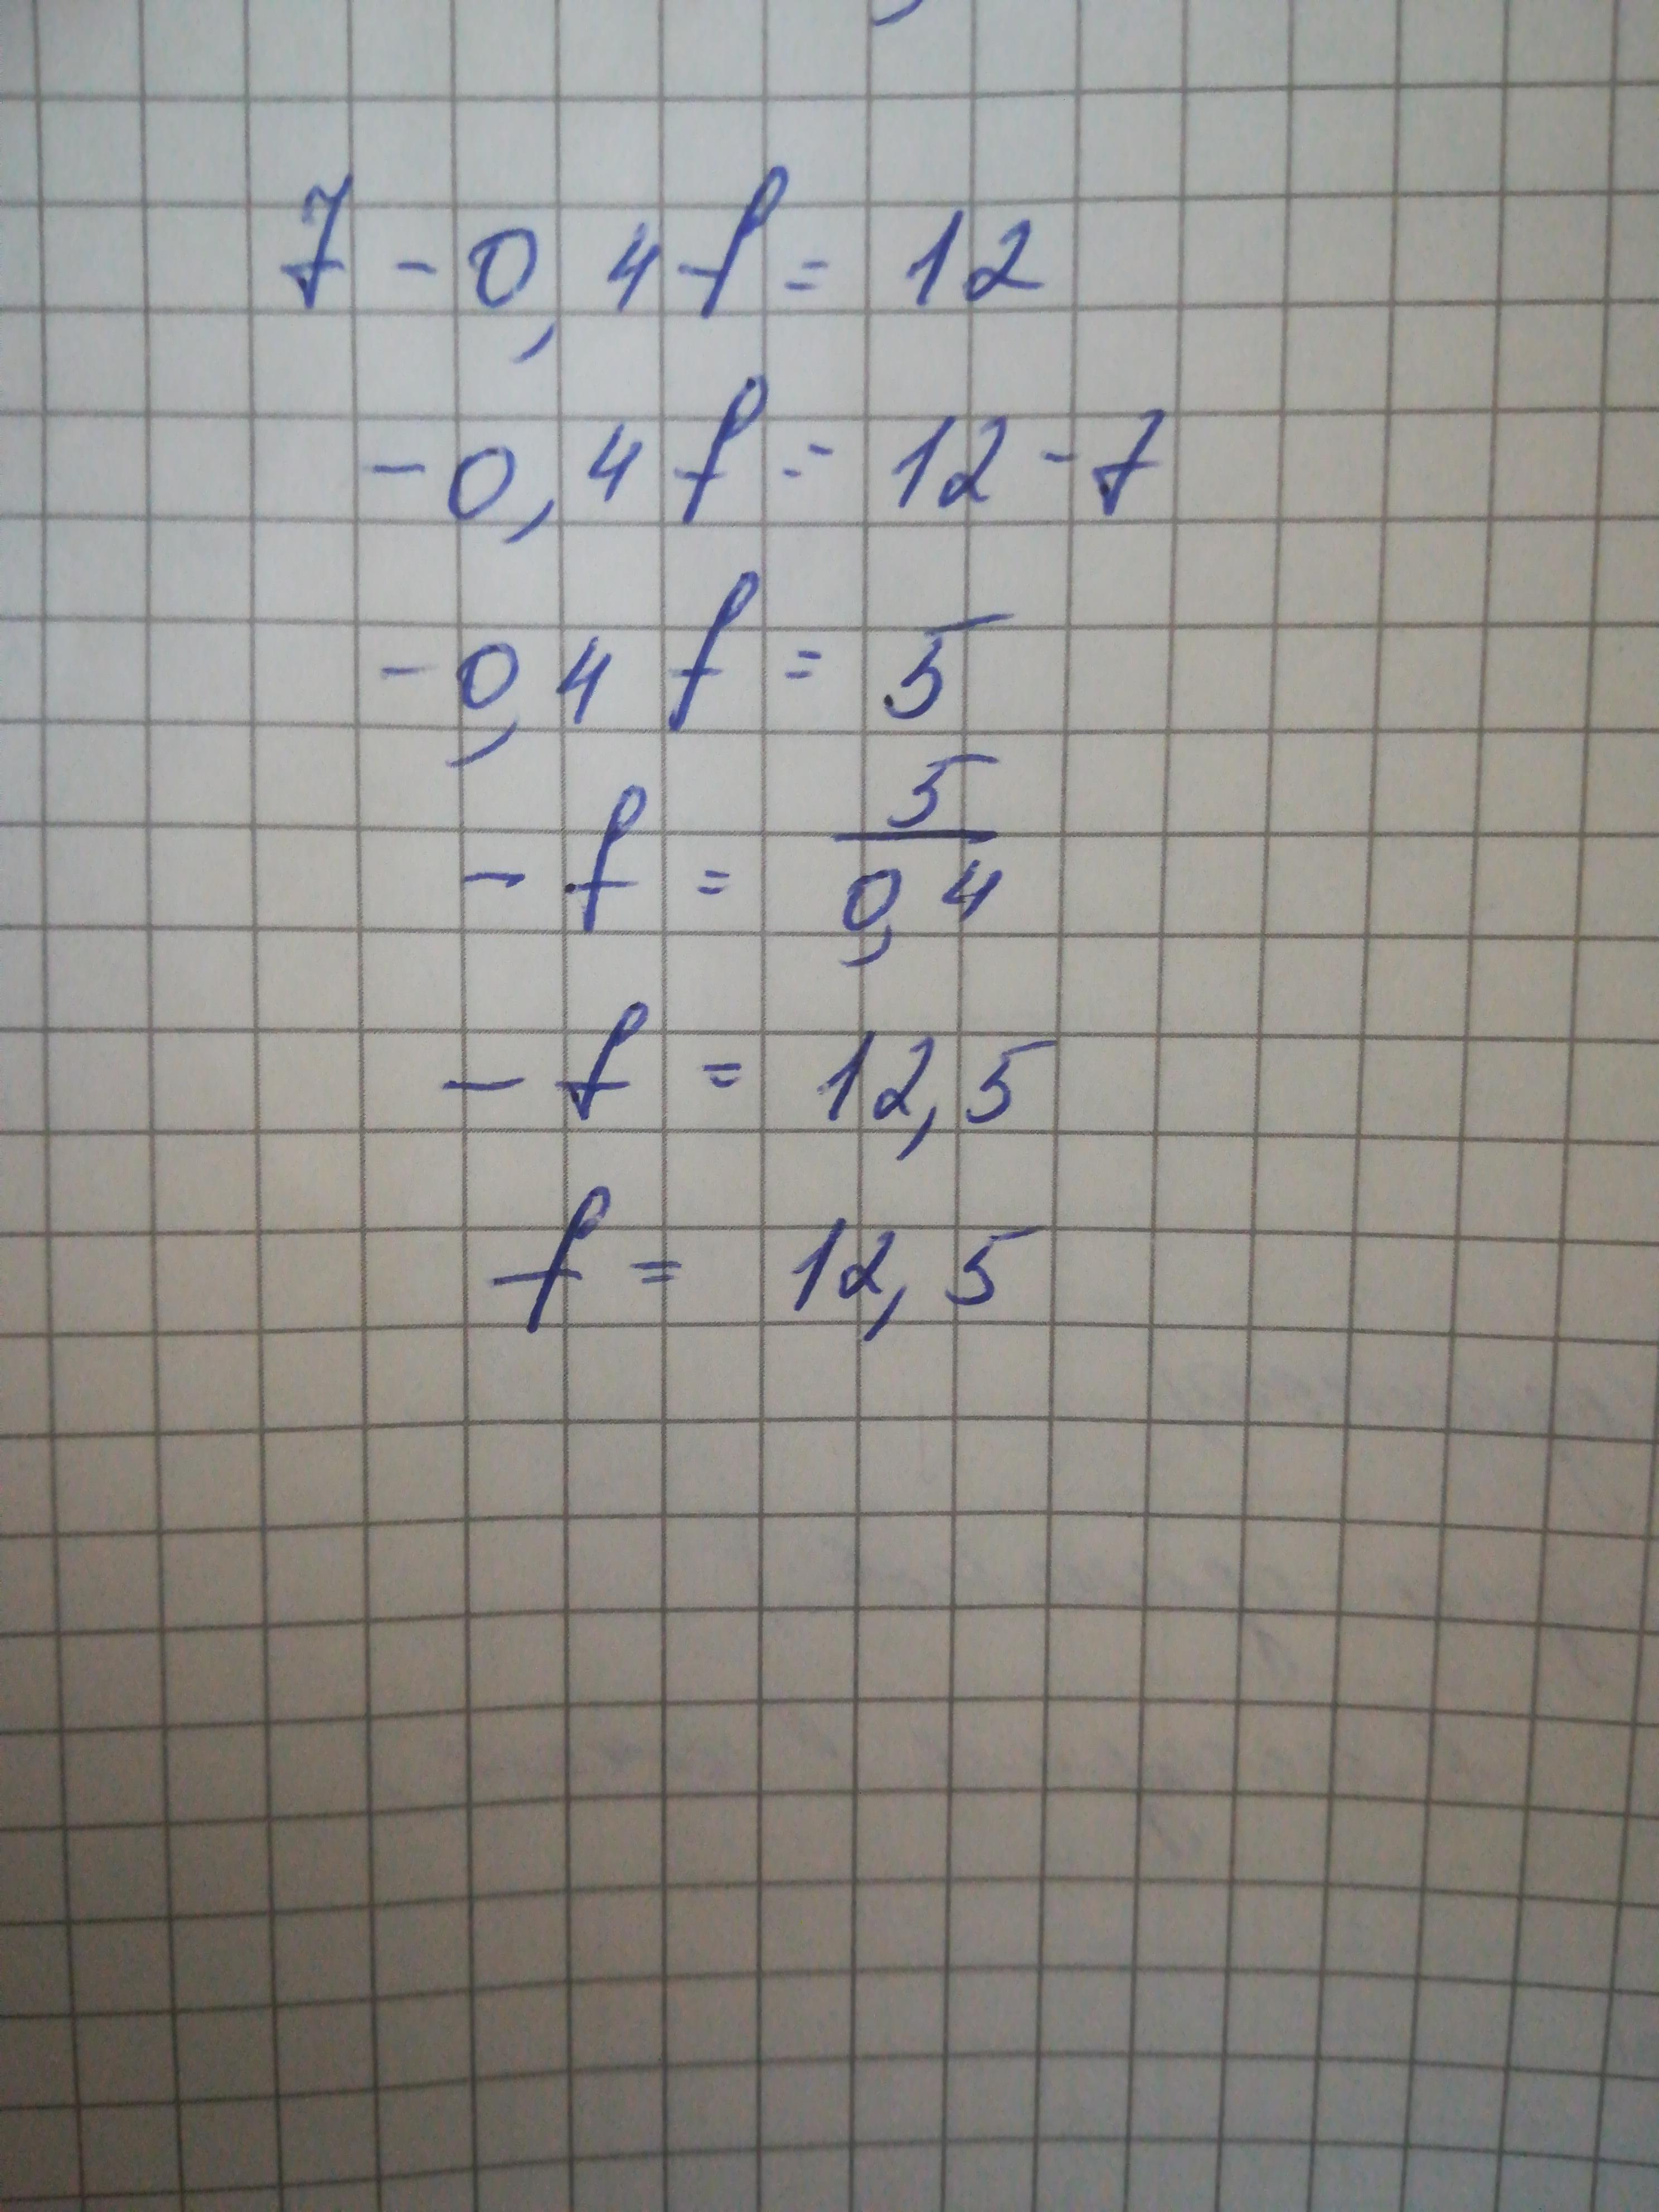 7 - 0,4f = 12
-0,4f = 12 - 7
-0,4f = 5
-f = 5/0,4
-f = 12,5
f = 12,5